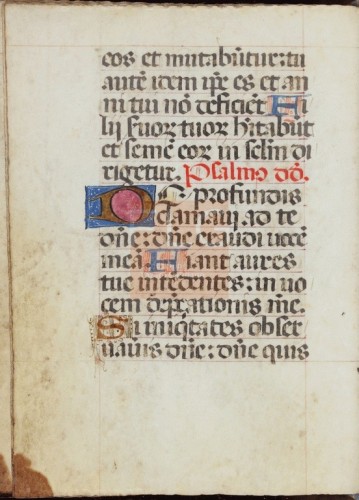 eos et mutabũtur: tu
autẽ idem ip̃e es et an
ni tui nõ deficiẽt Fi
lij suor̃ tuor̃ hĩtabũt
et semẽ eor̃ in sclm̃ di
rigetur. Psalmo dd̃.
De profundis
clamaui ad te
dñe: dñe exaudi uocẽ
meã Fiant aures
tue intẽdentes: in uo
cem dep̃cationis mee.
Si iniq̃tates obser
uauis dñe: dñe quis